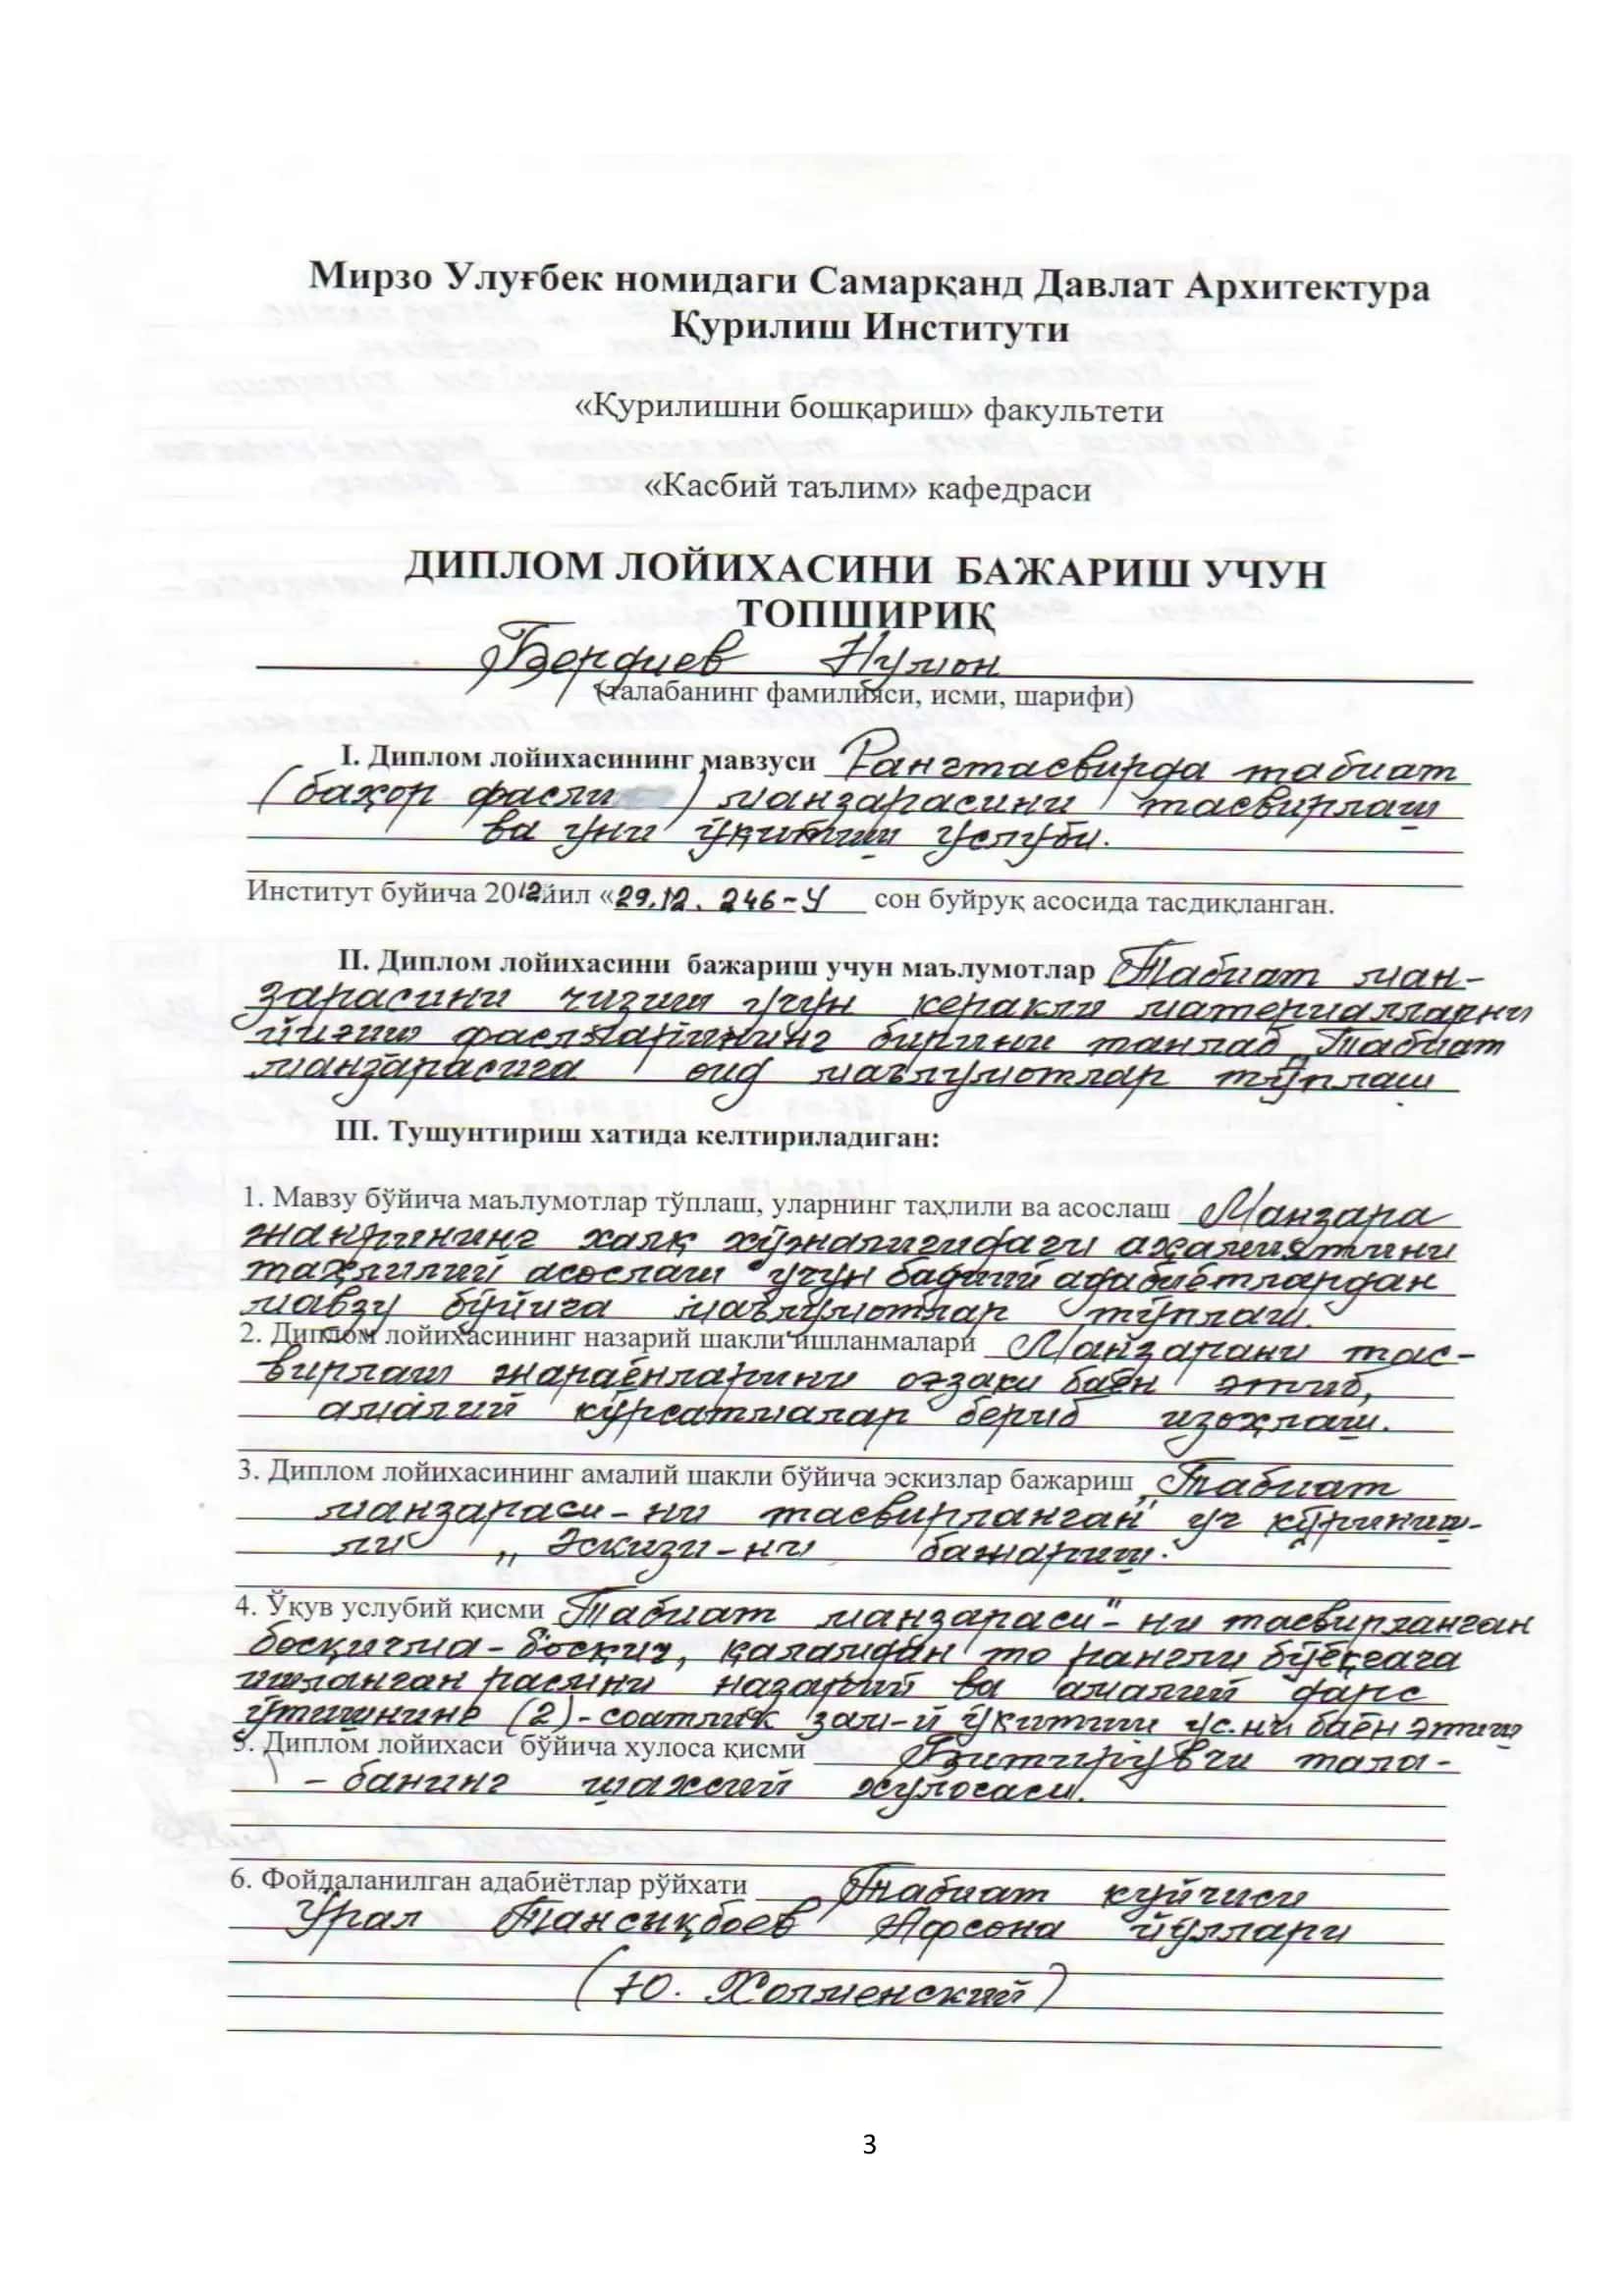 Мирзо Улуғбек номидаги Самарқанд Давлат Архитектура
Қурилиш Институти
«Қурилишни бошқариш» факультети
«Касбий таълим» кафедраси
ДИПЛОМ ЛОЙИХАСИНИ БАЖАРИШ УЧУН
ТОПШИРИҚ
Бердиев Нумон
(талабанинг фамилияси, исми, шарифи)
I. Диплом лойихасининг мавзуси Рангтасвирда табиат
(баҳор фасли) манзарасини тасвирлаш
ва уни ўқитиш услуби.
Институт буйича 2012йил «29.12. 246-У сон буйруқ асосида тасдиқланган.
II. Диплом лойихасини бажариш учун маълумотлар Табиат ман-
зарасини чизиш учун керакли материалларни
йиғиш фаслларининг бирини танлаб „Табиат
манзарасига оид маълумотлар тўплаш
III. Тушунтириш хатида келтириладиган:
1. Мавзу бўйича маълумотлар тўплаш, уларнинг таҳлили ва асослаш Манзара
жанрининг халқ хўжалигидаги аҳамиятини
таҳлилий асослаш учун бадиий адабиётлардан
мавзу бўйича маълумотлар тўплаш.
2. Диплом лойихасининг назарий шакли ишланмалари Манзарани тас-
вирлаш жараёнларини оғзаки баён этиб,
амалий кўрсатмалар бериб изоҳлаш.
3. Диплом лойихасининг амалий шакли бўйича эскизлар бажариш „Табиат
манзараси-ни тасвирланган" уч кўриниш-
ли „ Эскизи-ни бажариш.
4. Ўқув услубий қисми „Табиат манзараси"-ни тасвирланган
босқичма-босқич, қаламдан то рангли бўёқгача
ишланган расмни назарий ва амалий дарс
ўтишнинг (2)-соатлик зам-й ўқитиш ус.ни баён этиш
5. Диплом лойихаси бўйича хулоса қисми Битирувчи тала-
- банинг шахсий хулосаси.
6. Фойдаланилган адабиётлар рўйхати Табиат куйчиси
Урал Тансиқбоев Афсона йўллари
(Ю. Холменский)
3